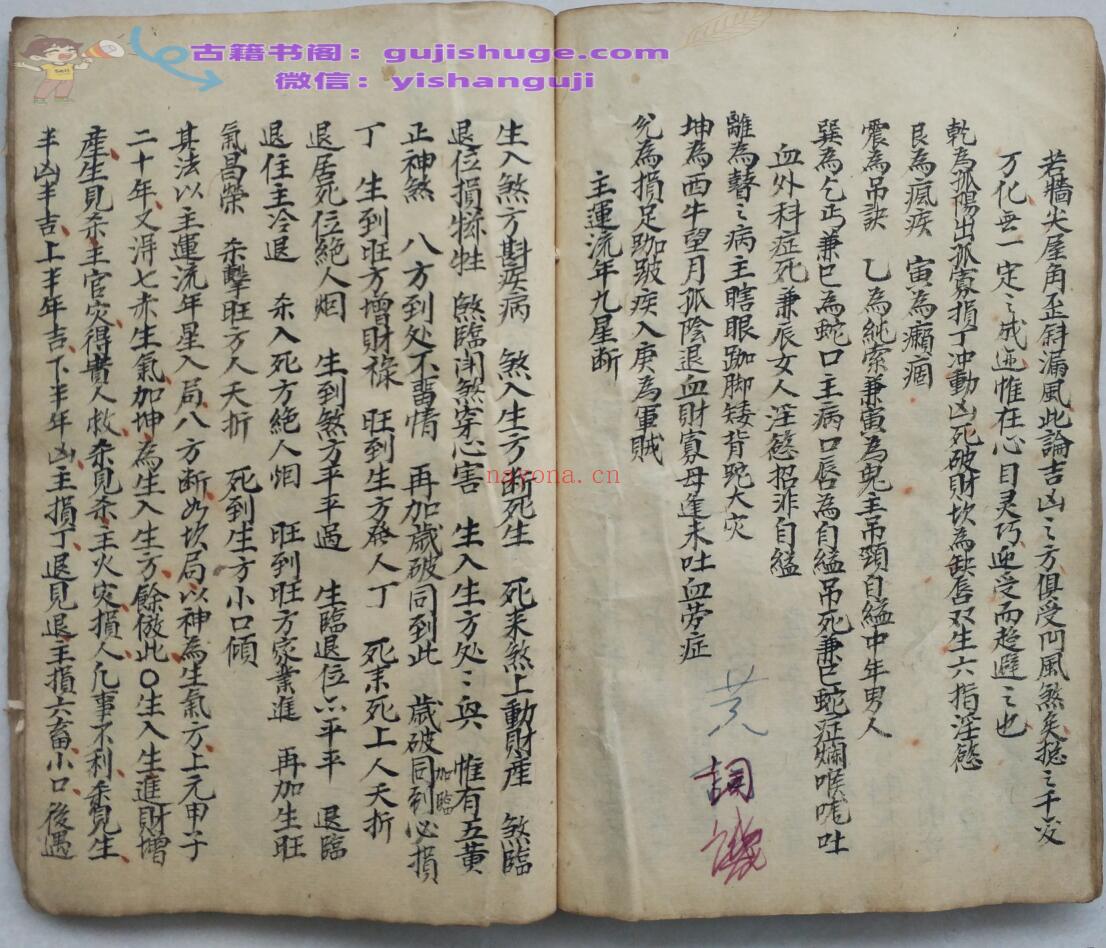 古籍书阁：gujishuge.com
微信：yishanguji
nayona.cn
若牆尖屋角歪斜漏風此論吉凶之方俱受凹風煞矣揔之千变
万化無一定之成迹惟在心目灵巧迎受而趋避之也
乾為孤陽出孤寡損丁冲動凶死破財坎為缺唇双生六指淫慾
艮為瘋疾　寅為癲痼
震為吊訣　乙為純索兼寅為鬼主吊頸自縊中年男人
巽為乞丐兼巳為蛇口主病口唇為自縊吊死兼巳蛇症爛喉吐
血外科症死兼辰女人淫慾招非自縊
離為瞽之病主瞎眼跏脚矮背跎大灾
坤為西牛望月孤陰退血財寡母進未吐血劳症
兌為損足跏跛疾入庚為軍賊
主運流年九星断
黄
詞
生入煞方斟疾病　煞入生方断死生　死来煞上動財産　煞臨
退位損犧牲　煞臨闭煞穿心害　生入生方处〻興　惟有五黄
正神煞　八方到处不畱情　再加歲破同到此　歲破同到加臨必損
丁　生到旺方增財禄　旺到生方發人丁　死来死上人夭折
退居死位絕人烟　生到煞方平平過　生臨退位亦平平　退臨
退住主冷退　杀入死方絕人烟　旺到旺方家業進　再加生旺
氣昌榮　杀擊旺方人夭折　死到生方小口傾
其法以主運流年星入局八方断如坎局以神為生氣方上元甲子
二十年又淂七赤生氣加坤為生入生方餘倣此〇生入生進財增
産生見杀主官灾得貴人救杀見杀主火灾損人凡事不利杀見生
半凶半吉上半年吉下半年凶主損丁退見退主損六畜小口後遇